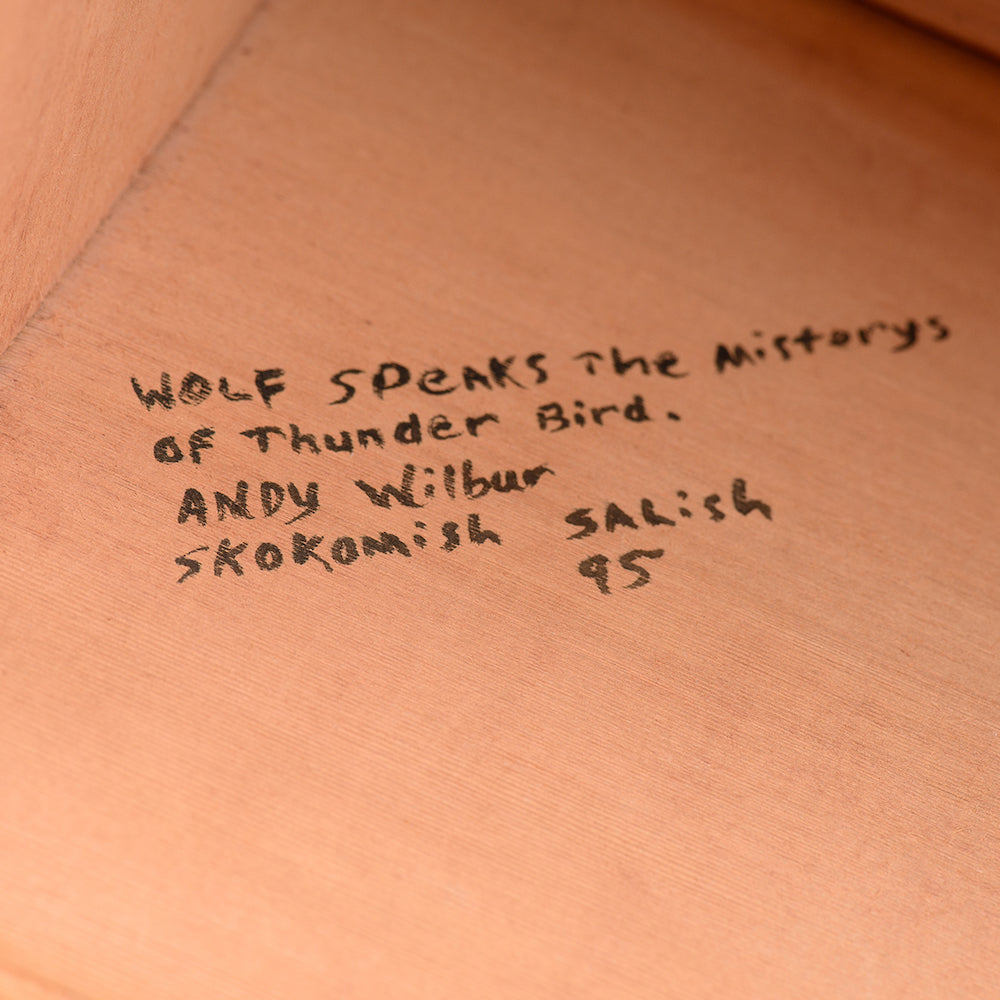 WOLF SPEAKS The Mistorys
OF Thunder Bird.
ANDY Wilbur
SKOKOMish SALish
95